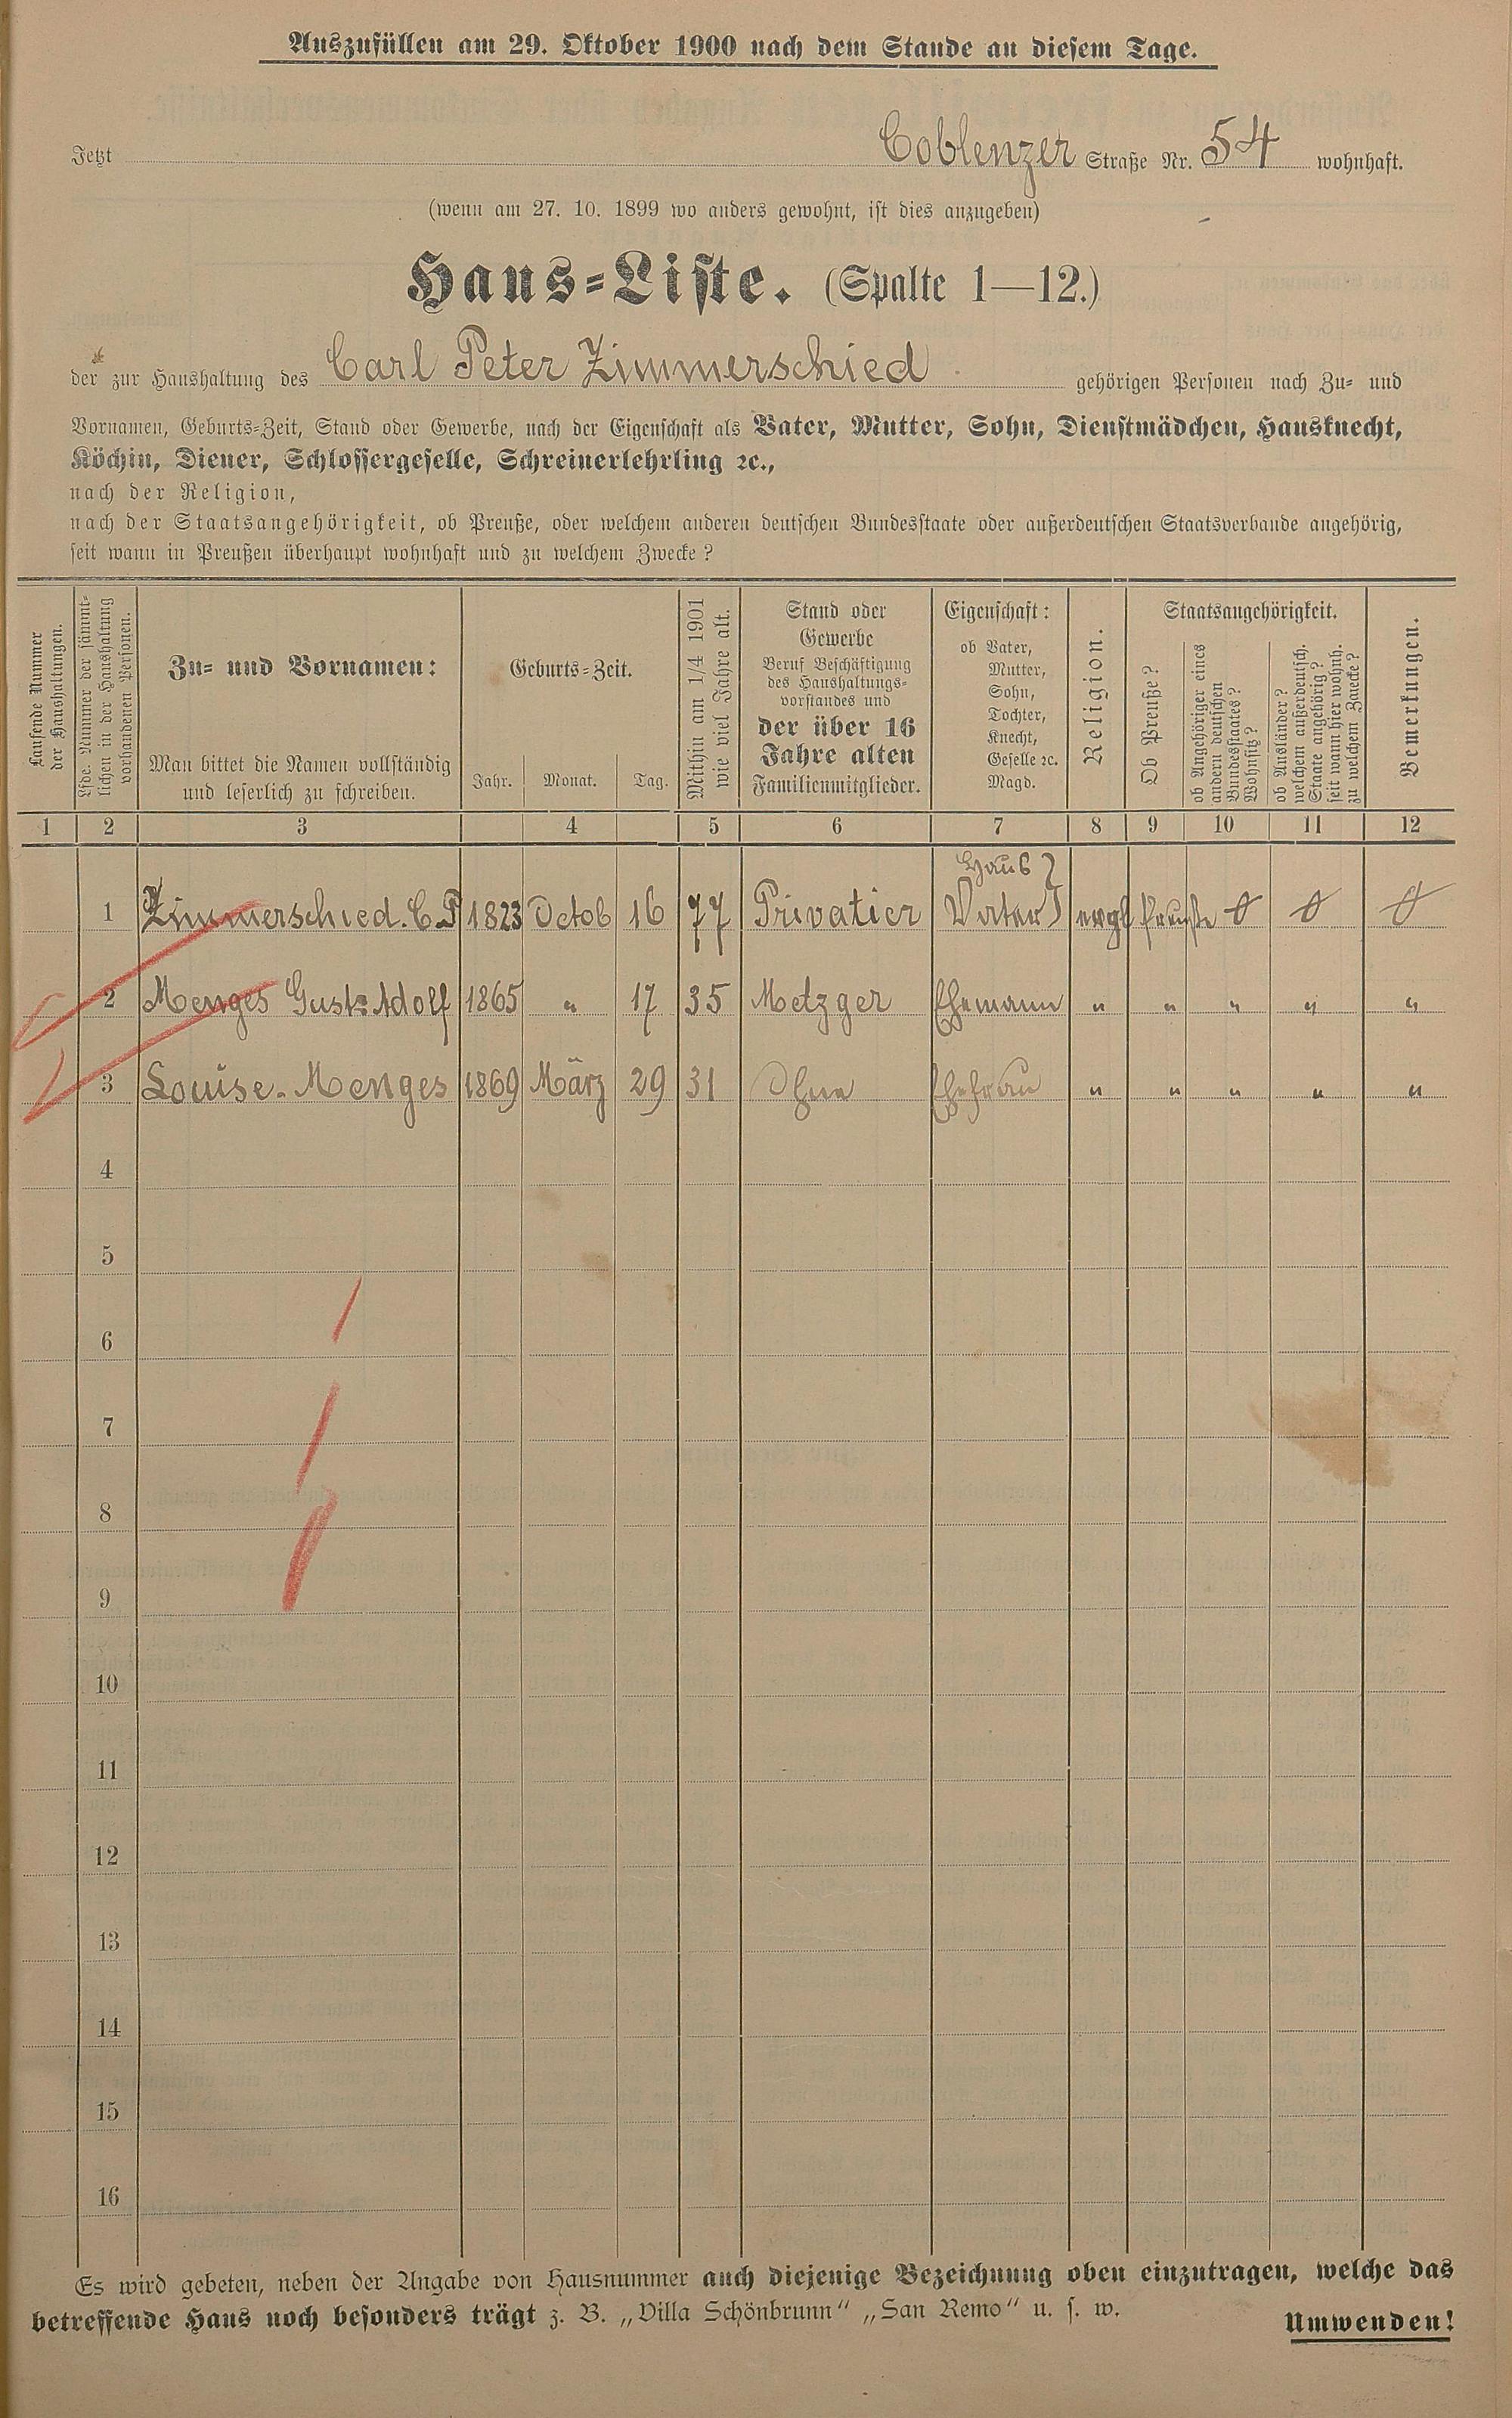 Auszufüllen am 29. Oktober 1900 nach dem Stande an diesem Tage.
Jetzt Coblenzer Straße Nr. 54 wohnhaft.
(wenn am 27. 10. 1899 wo anders gewohnt, ist dies anzugeben)
Haus-Liste. (Spalte 1—12.)
der zur Haushaltung des Carl Peter Zimmerschied gehörigen Personen nach Zu- und
Vornamen, Geburts-Zeit, Stand oder Gewerbe, nach der Eigenschaft als Vater, Mutter, Sohn, Dienstmädchen, Hausknecht,
Köchin, Diener, Schlossergeselle, Schreinerlehrling ꝛc.,
nach der Religion,
nach der Staatsangehörigkeit, ob Preuße, oder welchem anderen deutschen Bundesstaate oder außerdeutschen Staatsverbande angehörig,
seit wann in Preußen überhaupt wohnhaft und zu welchem Zwecke?
Laufende Nummer
der Haushaltungen.
Lfde. Nummer der sämmt-
lichen in der Haushaltung
vorhandenen Personen.
Zu- und Vornamen:
Man bittet die Namen vollständig
und leserlich zu schreiben.
Geburts-Zeit.
Jahr. Monat. Tag.
Mithin am 1/4 1901
wie viel Jahre alt.
Stand oder
Gewerbe
Beruf Beschäftigung
des Haushaltungs-
vorstandes und
der über 16
Jahre alten
Familienmitglieder.
Eigenschaft:
ob Vater,
Mutter,
Sohn,
Tochter,
Knecht,
Geselle ꝛc.
Magd.
Religion.
Staatsangehörigkeit.
Ob Preuße?
ob Angehöriger eines
andern deutschen
Bundesstaates?
Wohnsitz?
ob Ausländer?
welchem außerdeutsch.
Staate angehörig?
seit wann hier wohnh.
zu welchem Zwecke?
Bemerkungen.
1 2 3 4 5 6 7 8 9 10 11 12
Haus
1 Zimmerschied. C. P 1823 Octob 16 77 Privatier Vater
2 Menges Gust. Adolf 1865 " 17 35 Metzger Ehemann " " " " "
3 Louise. Menges 1869 März 29 31 Ohne Ehefrau " " " " "
4
5
6
7
8
9
10
11
12
13
14
15
16
Es wird gebeten, neben der Angabe von Hausnummer auch diejenige Bezeichnung oben einzutragen, welche das
betreffende Haus noch besonders trägt z. B. „Villa Schönbrunn“ „San Remo“ u. s. w.
Umwenden!